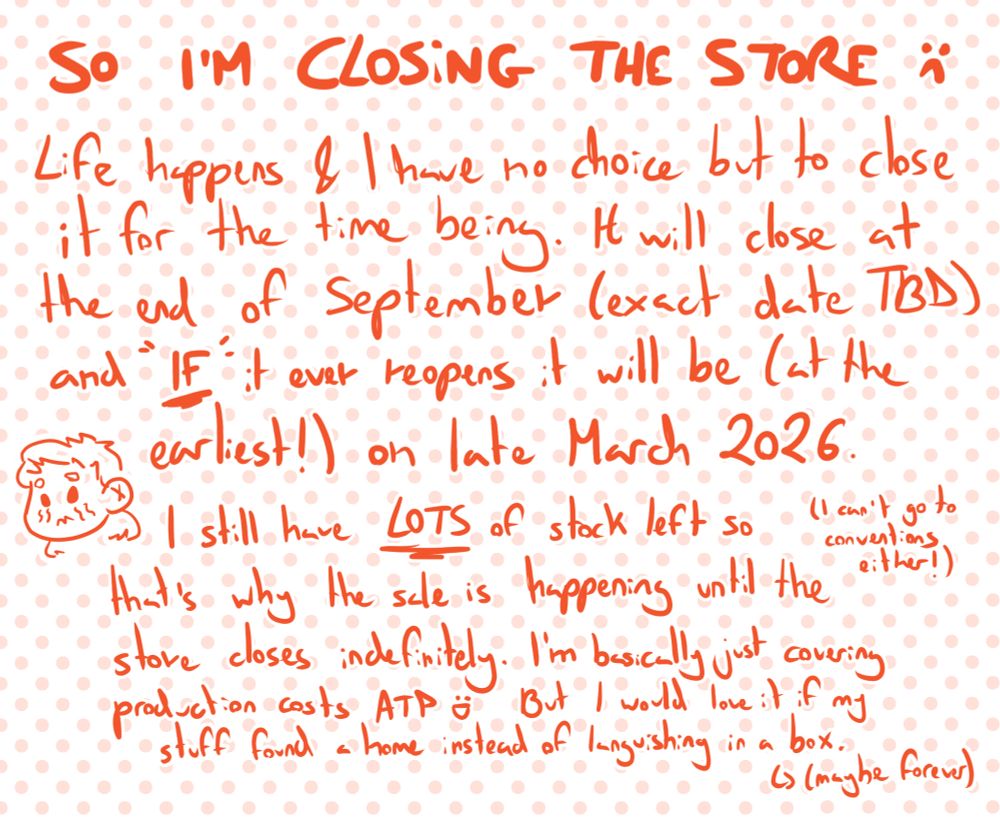 SO I'M CLOSING THE STORE :(
Life happens & I have no choice but to close
it for the time being. It will close at
the end of September (exact date TBD)
and "IF" it ever reopens it will be (at the
earliest!) on late March 2026.
I still have LOTS of stock left so
(I can't go to
conventions
either!)
that's why the sale is happening until the
store closes indefinitely. I'm basically just covering
production costs ATP :( But I would love it if my
stuff found a home instead of languishing in a box.
↳ (maybe forever)